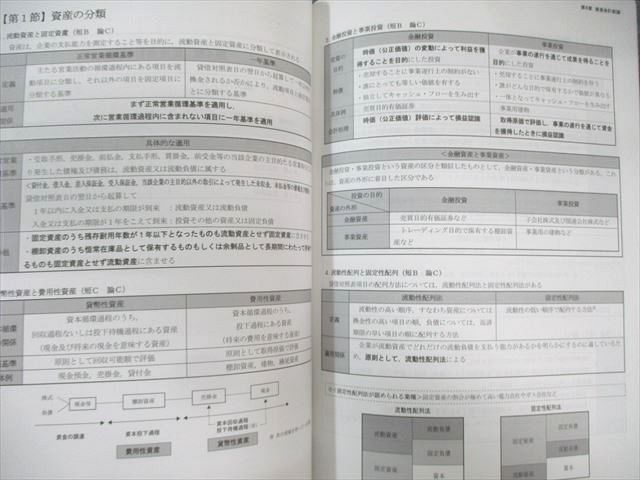 【第1節】資産の分類
流動資産と固定資産（短B 論C）
資産は、企業の支払能力を測定すること等を目的に、流動資産と固定資産に分類して表示される
正常営業循環基準
一年基準
定義
主たる営業活動の循環過程内にある項目を流動項目に分類し、それ以外の項目を固定項目に分類する基準
貸借対照表日の翌日から起算して一年以内に
まず正常営業循環基準を適用し、
次に営業循環過程内に含まれない項目に一年基準を適用
具体的な適用
・受取手形、売掛金、前払金、支払手形、買掛金、前受金等の当該企業の主目的たる営業取引により
発生した債権及び債務は、流動資産又は流動負債に属する
貸借対照表日の翌日から起算して
1年以内に入金又は支払の期限が到来 ：流動資産又は流動負債
入金又は支払の期限が1年をこえて到来：投資その他の資産又は固定負債
・固定資産のうち残存耐用年数が1年以下となったものも流動資産とせず固定資産に含ませ
・棚卸資産のうち恒常在庫品として保有するものもしくは余剰品として長期間にわたって所有
るものも固定資産とせず流動資産に含ませる
幣性資産と費用性資産（短C 論C）
貨幣性資産
費用性資産
資本循環過程のうち、
回収過程ないしは投下待機過程にある資産
（現金及び将来の現金を意味する資産）
資本循環過程のうち、
投下過程にある資産
（将来の費用を意味する資産）
原則として回収可能額で評価
原則として取得原価で評価
体例
現金預金、売掛金、貸付金
棚卸資産、建物、繰延資産
株式
社債
現金等
棚卸資産
売掛金
現金
資金の調達
資本投下過程
資本回収過程
投下待機過程
費用性資産
貨幣性資産
第4章 資産会計総論
3. 金融投資と事業投資（短B 論C）
金融投資
事業投資
投資の目的
時価（公正価値）の変動によって利益を獲得することを目的にした投資
企業が事業の遂行を通じて成果を得ることを目的にした投資
・売却することに事業遂行上の制約がない
・誰にとっても等しい価値を有する
・独立してキャッシュ・フローを生み出す
・売却することに事業遂行上の制約を伴う
・誰がどんな目的で保有するかで価値が異なる
・一体となってキャッシュ・フローを生み出す
具体例
売買目的有価証券
事業用建物
会計処理
時価（公正価値）評価によって損益認識
取得原価で評価し、事業の遂行を通じて資金を獲得したときに損益認識
＜金融資産と事業資産＞
金融投資・事業投資という資産の区分と類似したものとして、金融資産・事業資産という分類がある。これ
は、資産の外形に着目した区分である
投資の目的
資産の外形
金融投資
事業投資
金融資産
売買目的有価証券など
子会社株式及び関連会社株式など
事業資産
トレーディング目的で保有する棚卸資産など
事業用の建物など
4. 流動性配列と固定性配列（短B 論C）
貸借対照表項目の配列方法については、流動性配列法と固定性配列法がある
流動性配列法
固定性配列法
定義
流動性の高い順序、すなわち資産については換金性の高い項目の順、負債については、返済期限の早い項目の順に配列する方法
流動性の低い順序で配列する方法
適用関係
企業が流動資産でどれだけの流動負債を支払う能力があるかを明らかにするのに適しているため、原則として、流動性配列法による
固定性配列法が認められる業種
流動性配列法
固定性配列法
流動資産
流動負債
固定負債
固定資産
資本
固定資産
固定負債